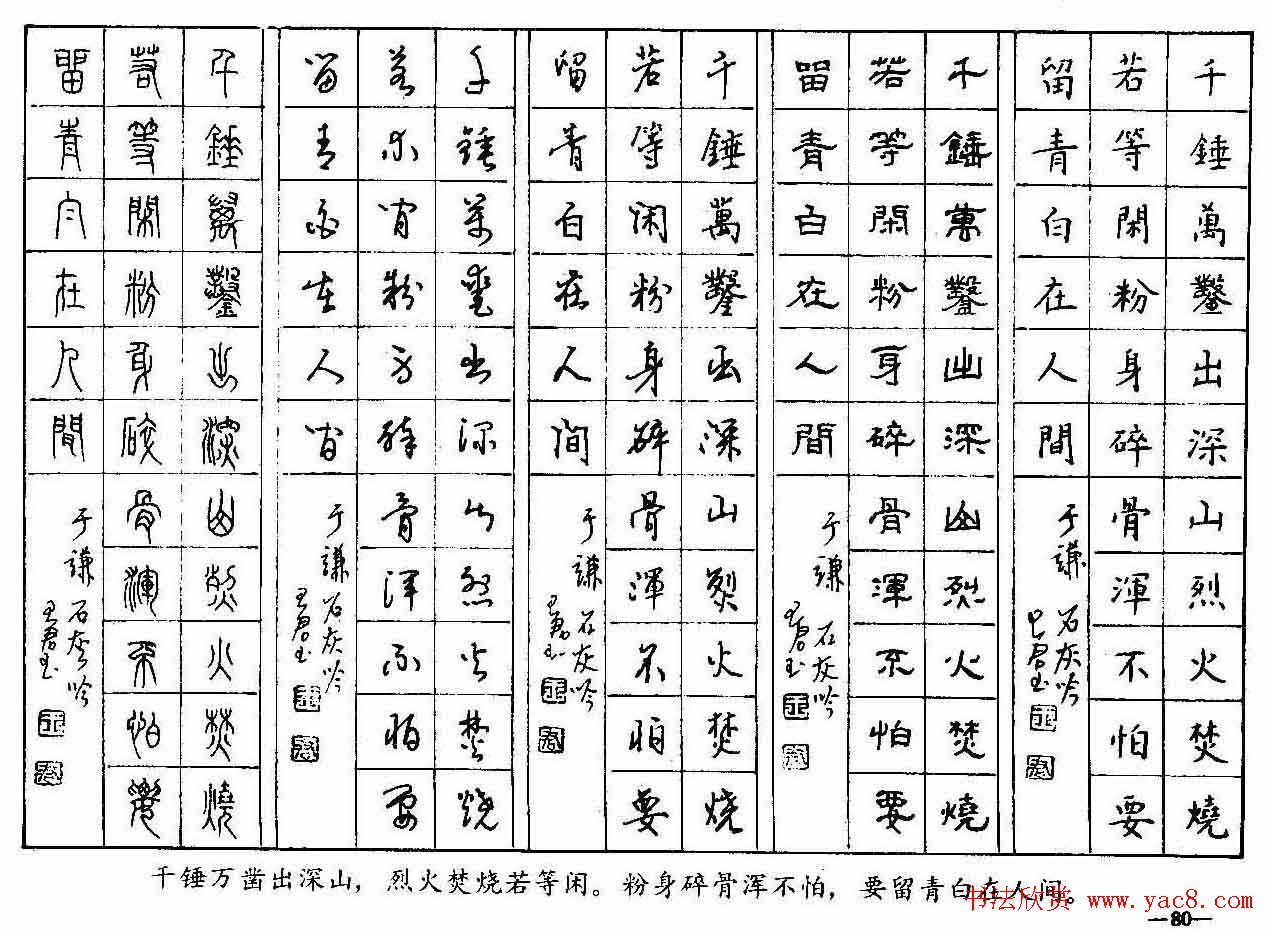 千錘萬鑿出深山烈火焚燒
若等閑粉身碎骨渾不怕要
留青白在人間
于謙 石灰吟
王君书
千錘萬鑿出深山烈火焚燒
若等閑粉身碎骨渾不怕要
留青白在人間
于謙 石灰吟
王君书
千錘萬鑿出深山烈火焚燒
若等闲粉身碎骨渾不怕要
留青白在人間
于謙 石灰吟
王君书
千錘萬鑿出深山烈火焚燒
若等閑粉身碎骨渾不怕要
留青白在人間
于謙 石灰吟
王君书
千錘萬鑿出深山烈火焚燒
若等閑粉身碎骨渾不怕要
留青白在人間
于謙 石灰吟
王君书
千锤万凿出深山，烈火焚烧若等闲。粉身碎骨浑不怕，要留青白在人间。
书法欣赏 www.yac8.com
—80—